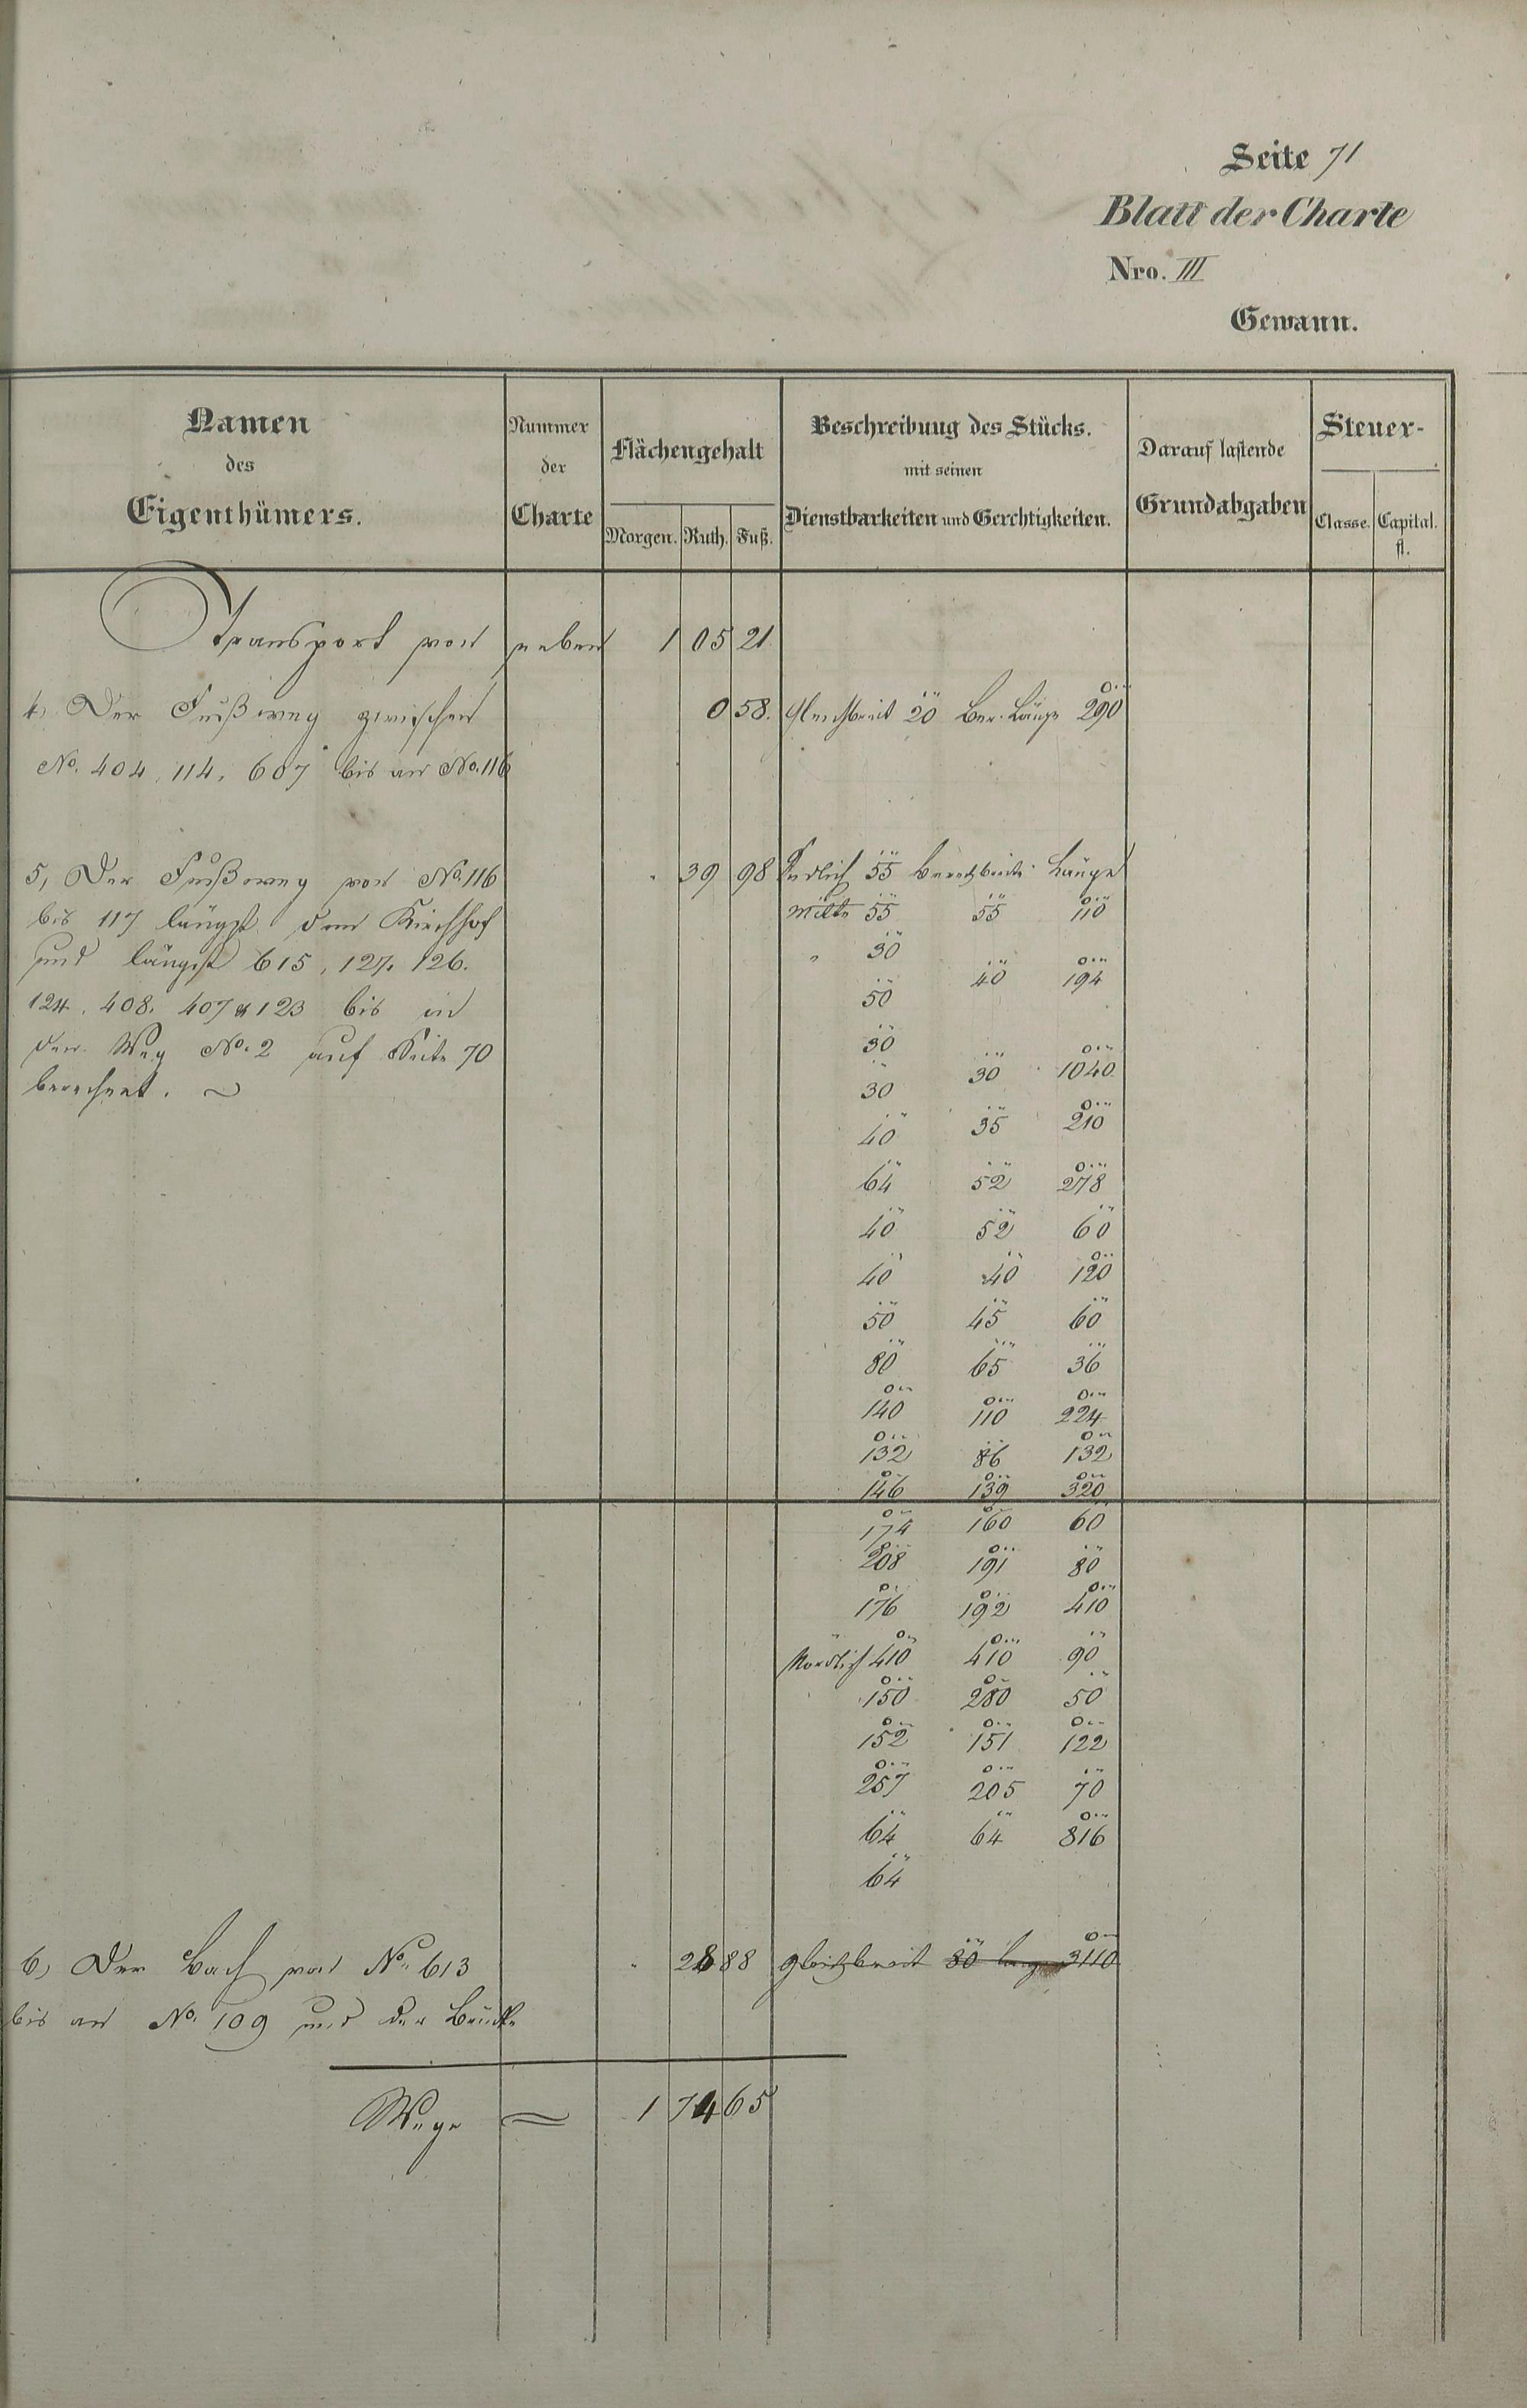 Seite 71
Blatt der Charte
Nro. III
Gewann.
Namen des Eigenthümers.
Nummer der Charte
Flächengehalt
Morgen. Ruth. Fuß.
Beschreibung des Stücks.
mit seinen
Dienstbarkeiten und Gerechtigkeiten.
Darauf lastende
Grundabgaben
Steuer-
Classe. Capital.
fl.
Transport von neben 1 05 21
4, Der Fußweg zwischen 0 58. Gleichbreit 20 Ber. Länge 290
No. 404, 114, 607 bis an No. 116
5, Der Fußweg von No. 116 " 39 98 Südlich 55 Berechbreite Länge
bis 117 längst dem Kirchhof Mitte 55 55 110
und längst 615, 127, 126. " 30
40 194
124. 408. 407 & 123 bis in 50
den Weg No. 2 auf Seite 70 30
30 1040
berechnet. 30
40 35 210
64 52 278
40 52 60
40 40 120
50 45 60
80 65 36
140 110 224
132 86 132
146 139 320
174 160 60
208 191 80
176 192 410
Nördlich 410 410 90
150 280 50
152 151 122
257 205 70
64 64 816
64
6, Der Bach von No. 613 " 28 88 Gleichbreit 80 lang 3110
bis an No. 109 und der Brücke
Wege = 1 74 65